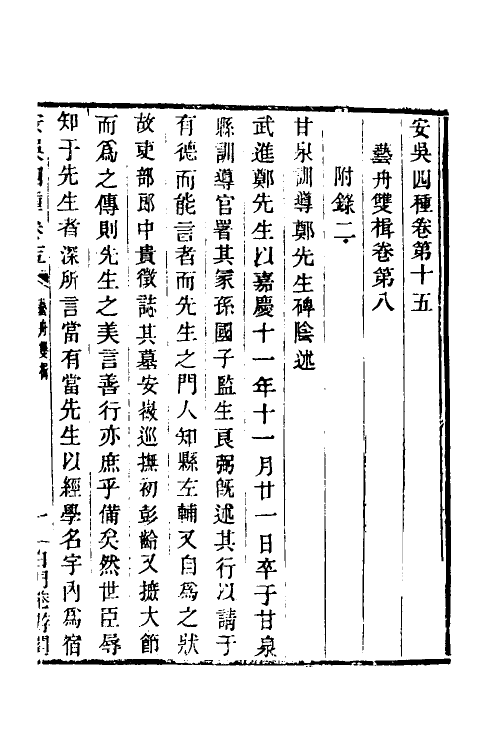 安吳四種卷第十五
藝舟雙楫卷第八
附錄二
甘泉訓導鄭先生碑陰述
武進鄭先生以嘉慶十一年十一月廿一日卒于甘泉
縣訓導官署其冢孫國子監生良弼旣述其行以請于
有德而能言者而先生之門人知縣左輔又自爲之狀
故吏部郎中貴徵誌其墓安徽巡撫初彭齡又摭大節
而爲之傳則先生之美言善行亦庶乎備矣然世臣辱
知于先生者深所言當有當先生以經學名宇內爲宿
安吳四種 卷十五 藝舟雙楫 一